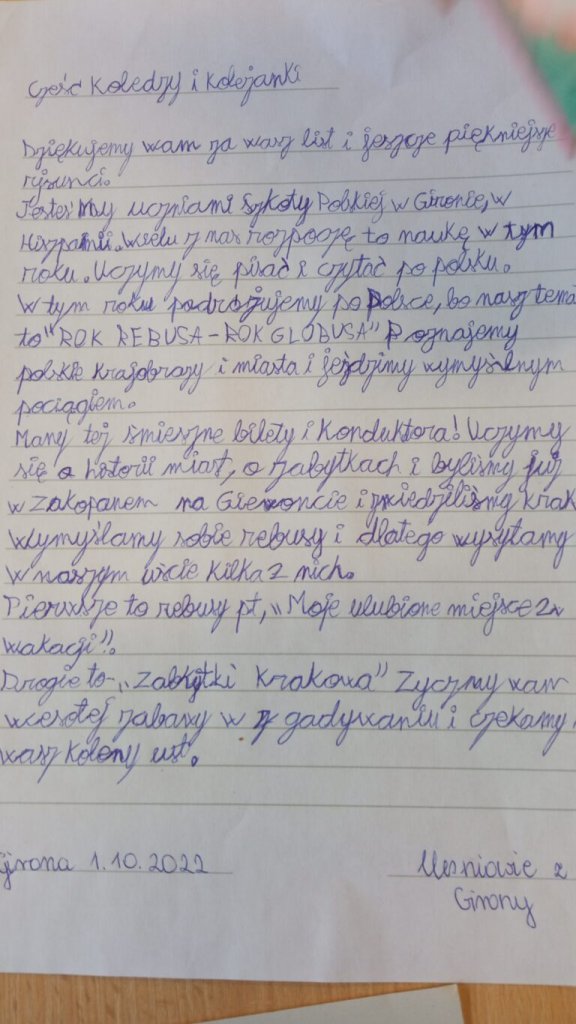 Cześć Koledzy i Koleżanki
Dziękujemy wam za wasz list i jeszcze piękniejsze
rysunci.
Jesteśmy uczniami szkoły Polskiej w Gironie, w
Hiszpanii. Wielu z nas rozpoczę to naukę w tym
roku. Uczymy się pisać i czytać po polsku.
W tym roku podrożujemy po Polsce, bo nasz tema
to "ROK REBUSA - ROK GLOBUSA" Poznajemy
polskie krajobrazy i miasta i jeździmy wymyślnym
pociągiem.
Mamy też śmieszne bilety i Konduktora! Uczymy
się o historii miast, o zabytkach i byliśmy już
w Zakopanem na Giewoncie i zwiedziliśmy Krak
Wymyślamy sobie rebusy i dlatego wysyłamy
w naszym liście kilka z nich.
Pierwsze to rebusy pt, "Moje ulubione miejsce z
wakacji".
Drogie to - "Zabytki Krakowa" Zyczymy wam
wesołej zabawy w zgadywaniu i czekamy
wasz kolejny list.
Girona 1.10.2022
Uczniowie z
Girony